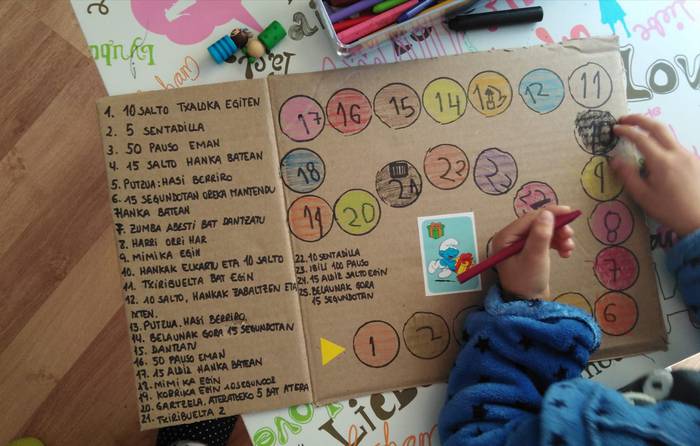 1. 10 SALTO TXALOKA EGITEN
2. 5 SENTADILLA
3. 50 PAUSO EMAN
4. 15 SALTO HANKA BATEAN
5. PUTZUA: HASI BERRIRO
6. 15 SEGUNDOTAN OREKA MANTENDU
HANKA BATEAN
7. ZUMBA ABESTI BAT DANTZATU
8. HARRI ORRI HAR
9. MIMIKA EGIN
10. HANKAK ELKARTU ETA 10 SALTO
11. TXIRIBUELTA BAT EGIN
12. 10 SALTO, HANKAK ZABALTZEN ETA
IXTEN.
13. PUTZUA. HASI BERRIRO,
14. BELAUNAK GORA 15 SEGUNDOTAN
15. DANTZATU
16. 50 PAUSO EMAN
17. 15 ALDIZ HANKA BATEAN
18. MIMIKA EGIN
19. KORRIKA EGIN 20 SEGUNDOZ
20. GARTZELA, ATERATZEKO 5 BAT ATERA
21. TXIRIBUELTA 2
22. 10 SENTADILLA
23. IBILI 100 PAUSO
24. 15 ALDIZ SALTO EGIN
25. BELAUNAK GORA
15 SEGUNDOTAN
17
16
15
14
13
12
11
10
9
8
7
6
18
19
20
21
22
23
1
2
Love